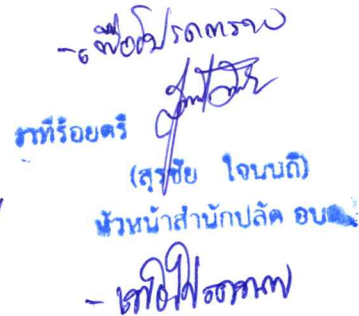 - เพื่อโปรดทราบ
ว่าที่ร้อยตรี
(สุรชัย ใจนบถี)
หัวหน้าสำนักปลัด อบต.
- เพื่อโปรดทราบ